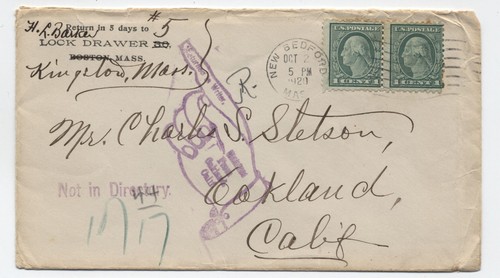 Return in 5 days to #5
H. L. Barker
LOCK DRAWER
BOSTON, MASS.
Kingston, Mass.
NEW BEDFORD
OCT 2
5 PM
1920
MAS
U.S. POSTAGE
1 CENT 1
U.S. POSTAGE
1 CENT 1
Writer.
R.
Mr. Charles S. Stetson,
Oakland,
Calif
Not in Directory.
44
17 17